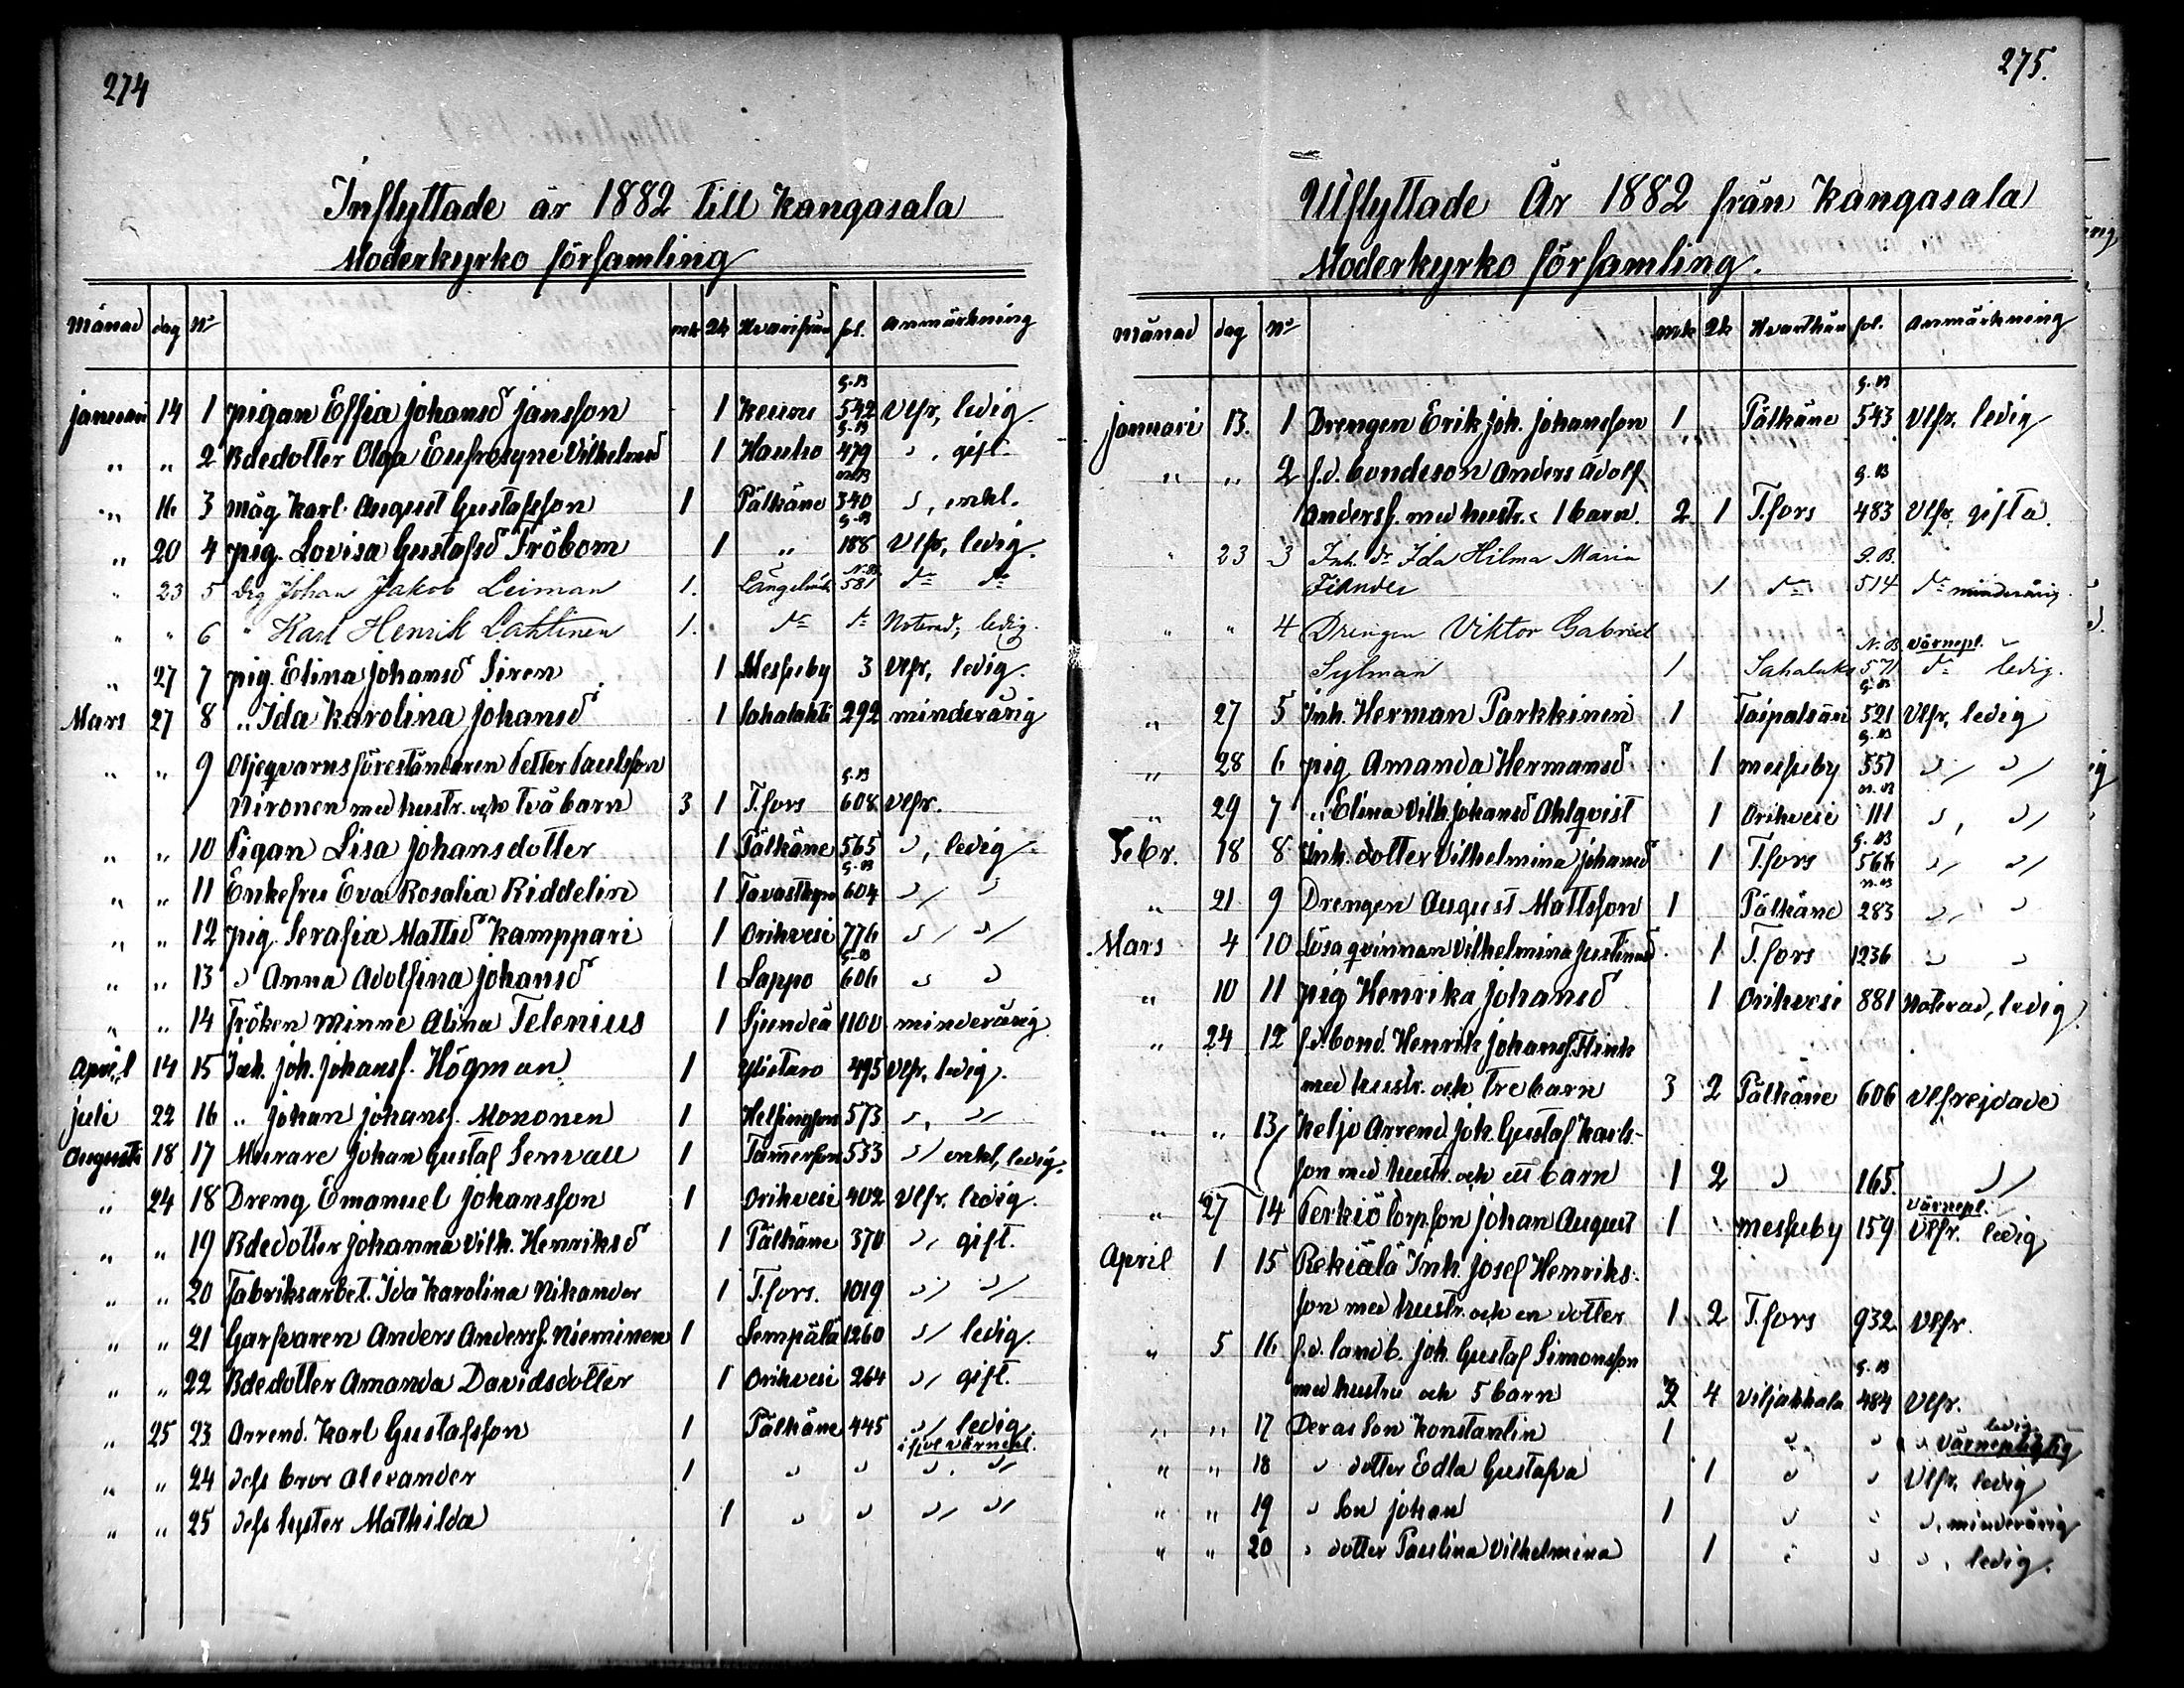 274
Inflyttade år 1882 till Kangasala
Moderkyrko församling
Månad dag No mk qk Hvarifrån fol. Anmärkning
G.B
januari 14 1 pigan Effia Johansd Jansson 1 Keuru 542 Vlfr, ledig
G.B
" " 2 Bdedotter Olga Eufrosyne Vilhelmsd 1 Hauho 479 " , gift.
" 16 3 måg Karl August Gustafsson 1 Pälkäne 340 " , enkl.
G.B
" 20 4 pig. Lovisa Gustafsd Fröbom 1 " 188 Vlfr, ledig.
N.B.
" 23 5 Drg Johan Jakob Leiman 1. 581 do do
" " 6 " Karl Henrik Lahtinen 1. do do Noterad, ledig.
" 27 7 pig. Elina Johansd Siren 1 Messuby 3 Vlfr, ledig.
Mars 27 8 " Ida Karolina Johansd 1 Sahalahti 292 minderårig
" " 9 Oljeqvarnsföreståndaren Petter Paulsson
G.B
Nironen med hustr. och två barn 3 1 T.fors 608 Vlfr.
" " 10 Pigan Lisa Johansdotter 1 Pälkäne 565 " , ledig
G.B
" " 11 Enkefru Eva Rosalia Riddelin 1 604 " "
" " 12 pig. Serafia Mattsd Kamppari 1 Orihvesi 776 " "
G.B
" " 13 " Anna Adolfina Johansd 1 Lappo 606 " "
" " 14 Fröken Minne Alina Telenius 1 Sjundeå 1100 minderårig
April 14 15 Inh. Joh. Johanss. Högman 1 Ylistaro 495 Vlfr, ledig.
juli 22 16 " Johan Johanss. Mononen 1 Helsingfors 573 " , "
Augusti 18 17 Murare Johan Gustaf Senvall 1 Tammerfors 533 " enkl, ledig.
" 24 18 Dreng Emanuel Johansson 1 Orihvesi 402 Vlfr. ledig.
" " 19 Bdedotter Johanna Vilh. Henriksd 1 Pälkäne 370 " , gift.
" " 20 Fabriksarbet. Ida Karolina Nikander 1 T.fors. 1019 " "
" " 21 Garfvaren Anders Anderss. Nieminen 1 Lempälä 1260 " ledig.
" " 22 Bdedotter Amanda Davidsdotter 1 Orihvesi 264 " , gift.
" 25 23 Arrend. Karl Gustafsson 1 Pälkäne 445 " ledig
värnepl.
" " 24 dess bror Alexander 1 " " " "
" " 25 dess syster Mathilda 1 " " " "
275.
Utflyttade År 1882 från Kangasala
Moderkyrko församling.
månad dag No mk qk Hvarthän fol. Anmärkning
G.B
januari 13. 1 Drengen Erik Joh. Johansson 1 Pälkäne 543 Vlfr. ledig
" " 2 f.d. bondeson Anders Adolf
G.B
Anderss. med hustr. 1 barn. 2 1 T.fors 483 Vlfr, gifta.
" 23 3 Inh. dr Ida Hilma Maria
G.B.
Fiander 1 do 514 do minderårig.
" " 4 Drengen Viktor Gabriel
N.B. värnepl.
Sylman 1 571 do ledig.
G.B
" 27 5 Inh. Herman Parkkinen 1 521 Vlfr, ledig
G.B
" 28 6 pig Amanda Hermansd 1 Messuby 557 " "
" 29 7 " Elina Vilh. Johansd Ahlqvist 1 Orihvesi 111 " , "
G.B
Febr. 18 8 Inh. dotter Vilhelmina Johansd 1 T.fors 566 " "
" 21 9 Drengen August Mattsson 1 Pälkäne 283 " "
Mars 4 10 Lösa qvinnan Vilhelmina Justinasd 1 T.fors 1236 " "
" 10 11 pig Henrika Johansd 1 Orihvesi 881 Noterad, ledig
" 24 12 f.d. bond. Henrik Johanss. Hink
med hustr. och tre barn 3 2 Pälkäne 606 Vlfrejdade
" " 13 Keljo Arrend. Joh. Gustaf Karls-
son med hustr. och ett barn 1 2 " 165. "
värnepl.
" 27 14 Perkiö Torpson Johan August 1 Messuby 159 Vlfr. ledig
April 1 15 Rekiälä Inh. Josef Henriks-
son med hustr. och en dotter 1 2 T.fors 932 Vlfr.
" 5 16 f.d. landb. Joh. Gustaf Simonsson
G.B
med hustru och 5 barn 3 4 Viljakkala 484 Vlfr.
ledig
" " 17 Deras Son Konstantin 1 " " " värnepligtig
" " 18 " dotter Edla Gustafva 1 " " Vlfr. ledig
" " 19 " Son Johan 1 " " " , minderårig
" " 20 " dotter Paulina Vilhelmina 1 " " " , ledig.